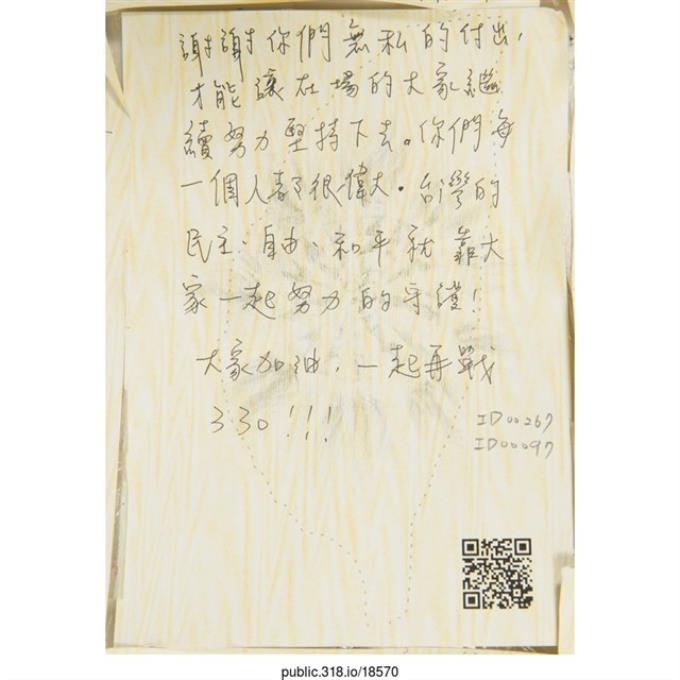 謝謝你們無私的付出，
才能讓在場的大家繼
續努力堅持下去。你們每
一個人都很偉大。台灣的
民主、自由、和平就靠大
家一起努力的守護！
大家加油，一起再戰
330!!!
ID00267
ID00097
public.318.io/18570